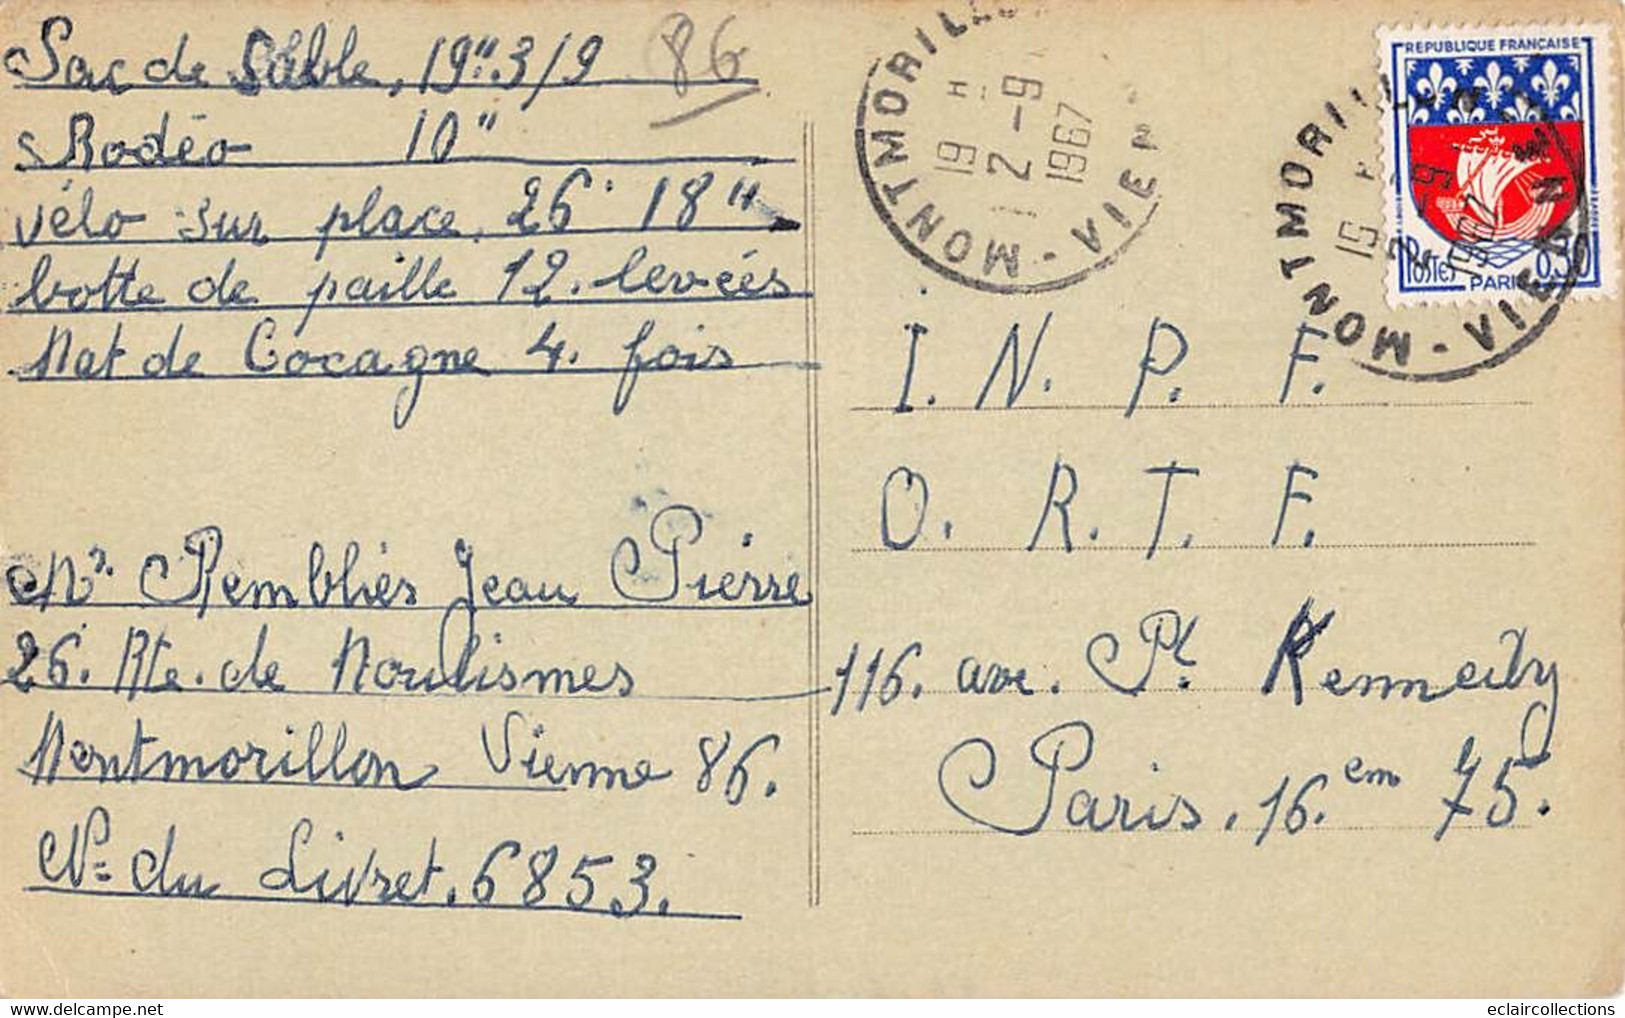 Sac de Sable, 19" 3/9
86
Rodéo 10"
vélo sur place, 26' 18"
botte de paille 12. levées
Mat de Cocagne 4. fois
Mr. Remblies Jean Pierre
26. Rte. de Moulismes
Montmorillon Vienne 86.
N= du Livret. 6853.
MONTMORILLON - VIENNE
19 H
2 - 9
1967
RÉPUBLIQUE FRANÇAISE
POSTES PARIS 0,30
MONTMORILLON - VIENNE
19 H
2 - 9
1967
I. N. P. F.
O. R. T. F.
116. ave. Pt. Kennedy
Paris. 16.em 75.
eclaircollections